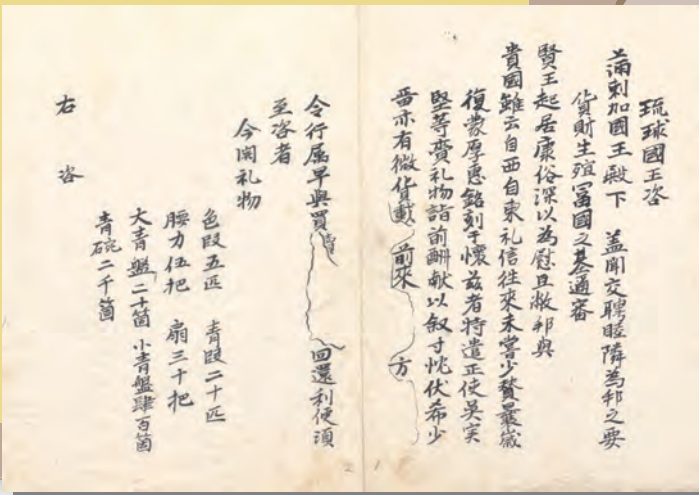 琉球國王咨
滿剌加國王殿下 蓋聞交聘睦隣為邦之要
貨財生殖冨國之基遹審
賢王起居康俗深以為慰且敝邦與
貴國雖云自西自東礼信徃來未嘗少贅曩歲
復蒙厚惠銘刻于懷茲者特遣正使吴実
堅等賫礼物詣前酬献以叙寸忱伏希少
畨亦有微貨載 前來 方
令行属早與買賣 回還利便須
至咨者
今開礼物
色段五匹 青段二十匹
腰刀伍把 扇三十把
大青盤二十箇 小青盤肆百箇
青碗二千箇
右 咨
2 1